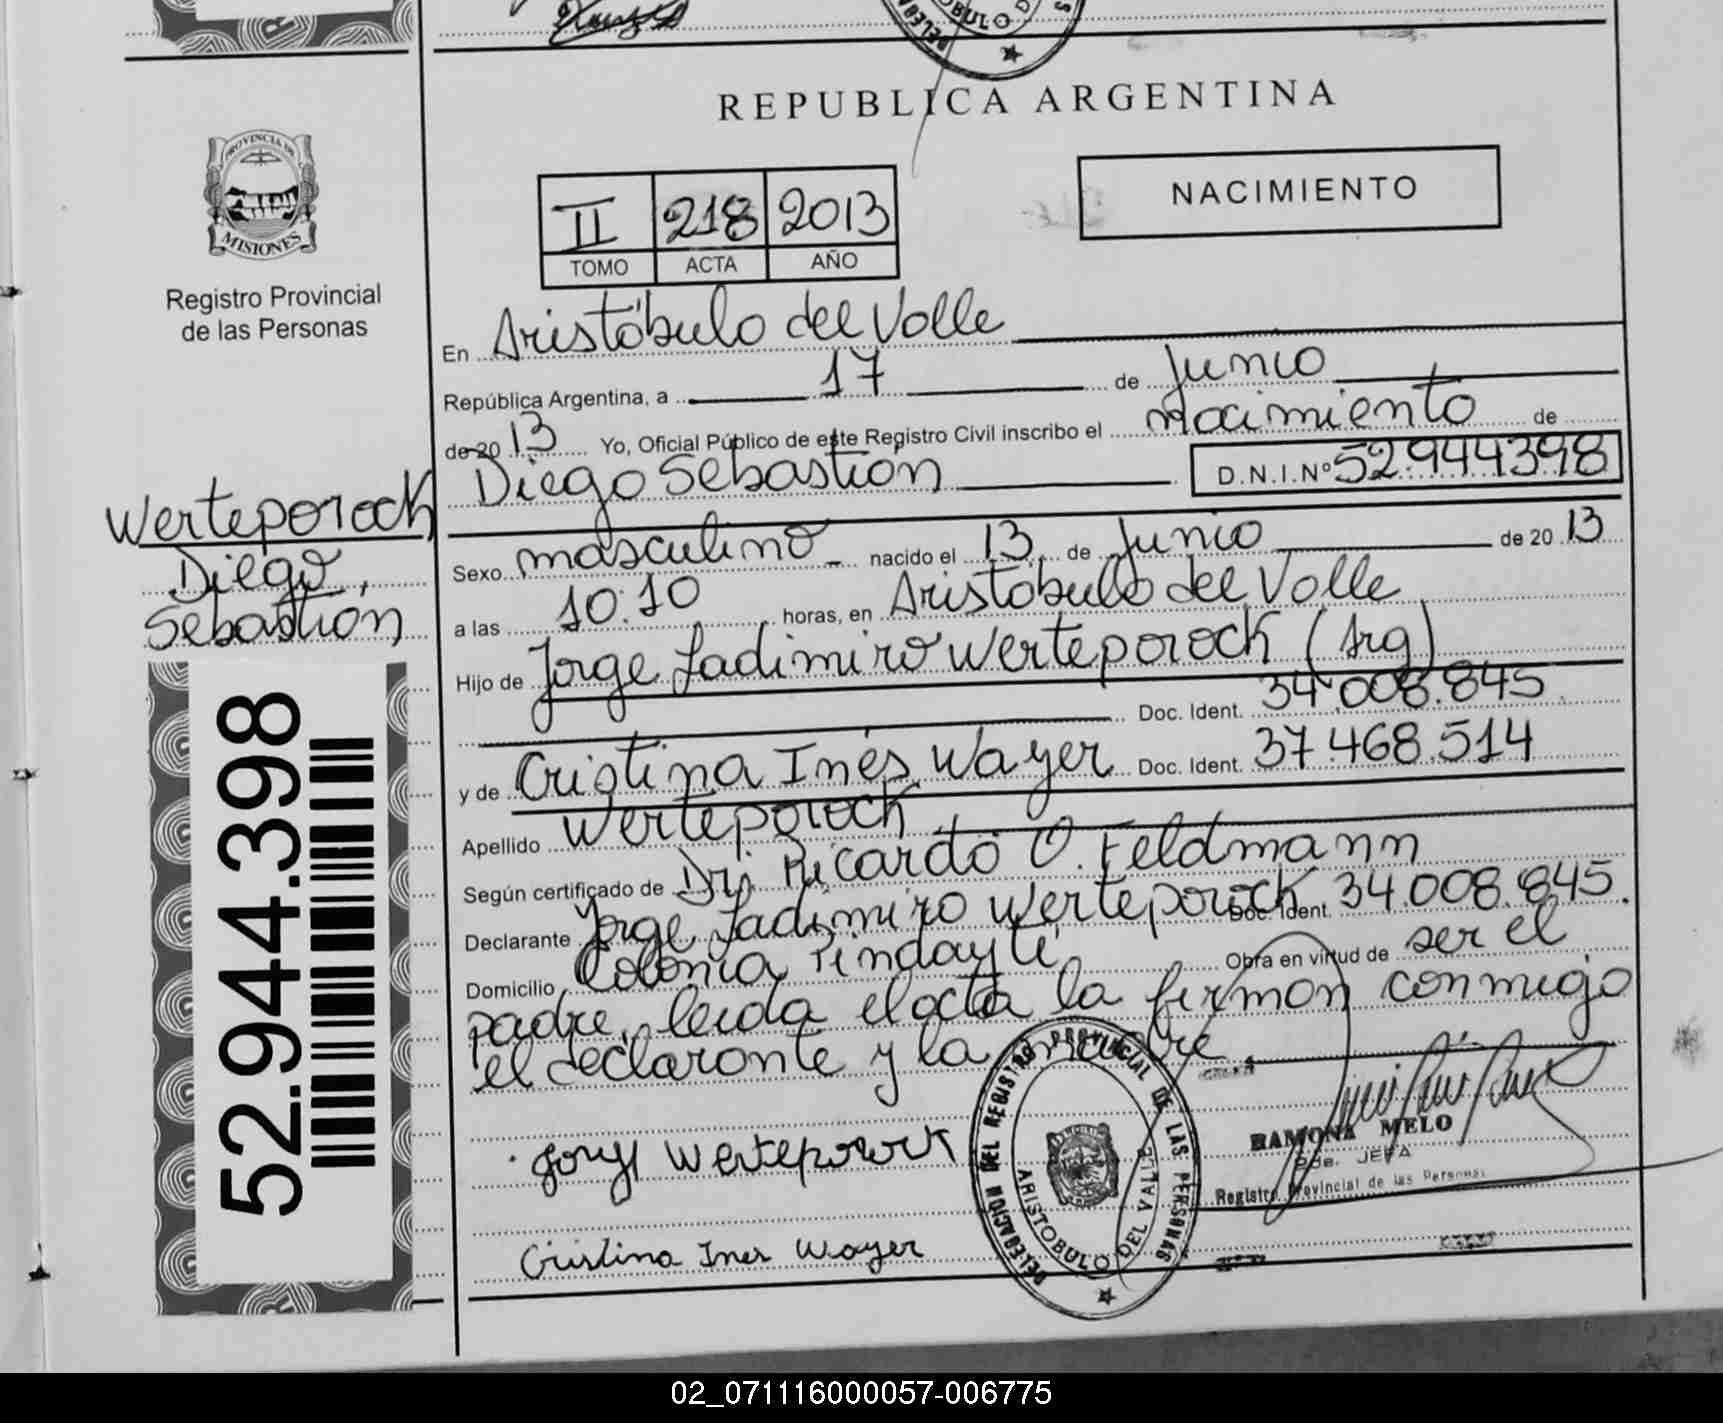 REPUBLICA ARGENTINA
PROVINCIA DE
MISIONES
Registro Provincial
de las Personas
II 218 2013
TOMO ACTA AÑO
NACIMIENTO
En Aristóbulo del Valle
República Argentina, a 17 de Junio
de 20 13 Yo, Oficial Público de este Registro Civil inscribo el nacimiento de
Diego Sebastian D.N.I.Nº 52.944398
Werteporock
Diego
Sebastian
Sexo masculino nacido el 13 de Junio de 20 13
a las 10:10 horas, en Aristobulo del Valle
Hijo de Jorge Ladimiro Werteporock (Arg)
Doc. Ident. 34.008.845
y de Cristina Inés Wayer Doc. Ident. 37.468.514
Apellido Werteporock
Según certificado de Dr. Ricardo O. Feldmann
Declarante Jorge Ladimiro Werteporock Doc. Ident. 34.008.845.
Domicilio Colonia Pindayti Obra en virtud de ser el
padre, leida el acta la firman conmigo
el declarante y la madre.
52.944.398
Jorge Werteporock
Cristina Ines Wayer
DELEGACION DEL REGISTRO PROVINCIAL DE LAS PERSONAS
ARISTOBULO DEL VALLE
RAMONA MELO
JEFA
Registro Provincial de las Personas
02_071116000057-006775